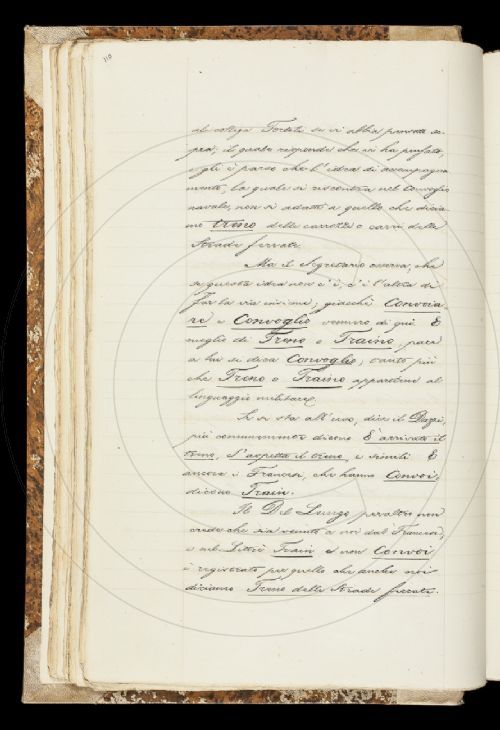 110
al collega Tortoli se vi abbia pensato so-
pra; il quale risponde che vi ha pensato,
e gli è parso che l'idea di accompagna-
mento, la quale si riscontra nel Convoglio
navale, non si adatti a quello che dicia-
mo treno delle carrozze o carri delle
Strade ferrate.
Ma il Segretario osserva, che
se questa idea non v'è, c'è l'altra di
far la via insieme; giacché Convoia-
re e Convoglio vennero di qui. E
meglio di Treno e Traino, pare
a lui si dica Convoglio, tanto più
che Treno e Traino appartiene al
linguaggio militare.
Se si sta all'uso, dice il Dazzi,
più comunemente dicono È arrivato il
treno, S'aspetta il treno, e simili. E
ancora i Francesi, che hanno Convoi,
dicono Train.
Il Del Lungo peraltro non
crede che sia venuto a noi dal Francese,
e nel Littré Train e non Convoi
è registrato per quello che anche noi
diciamo Treno delle Strade ferrate.